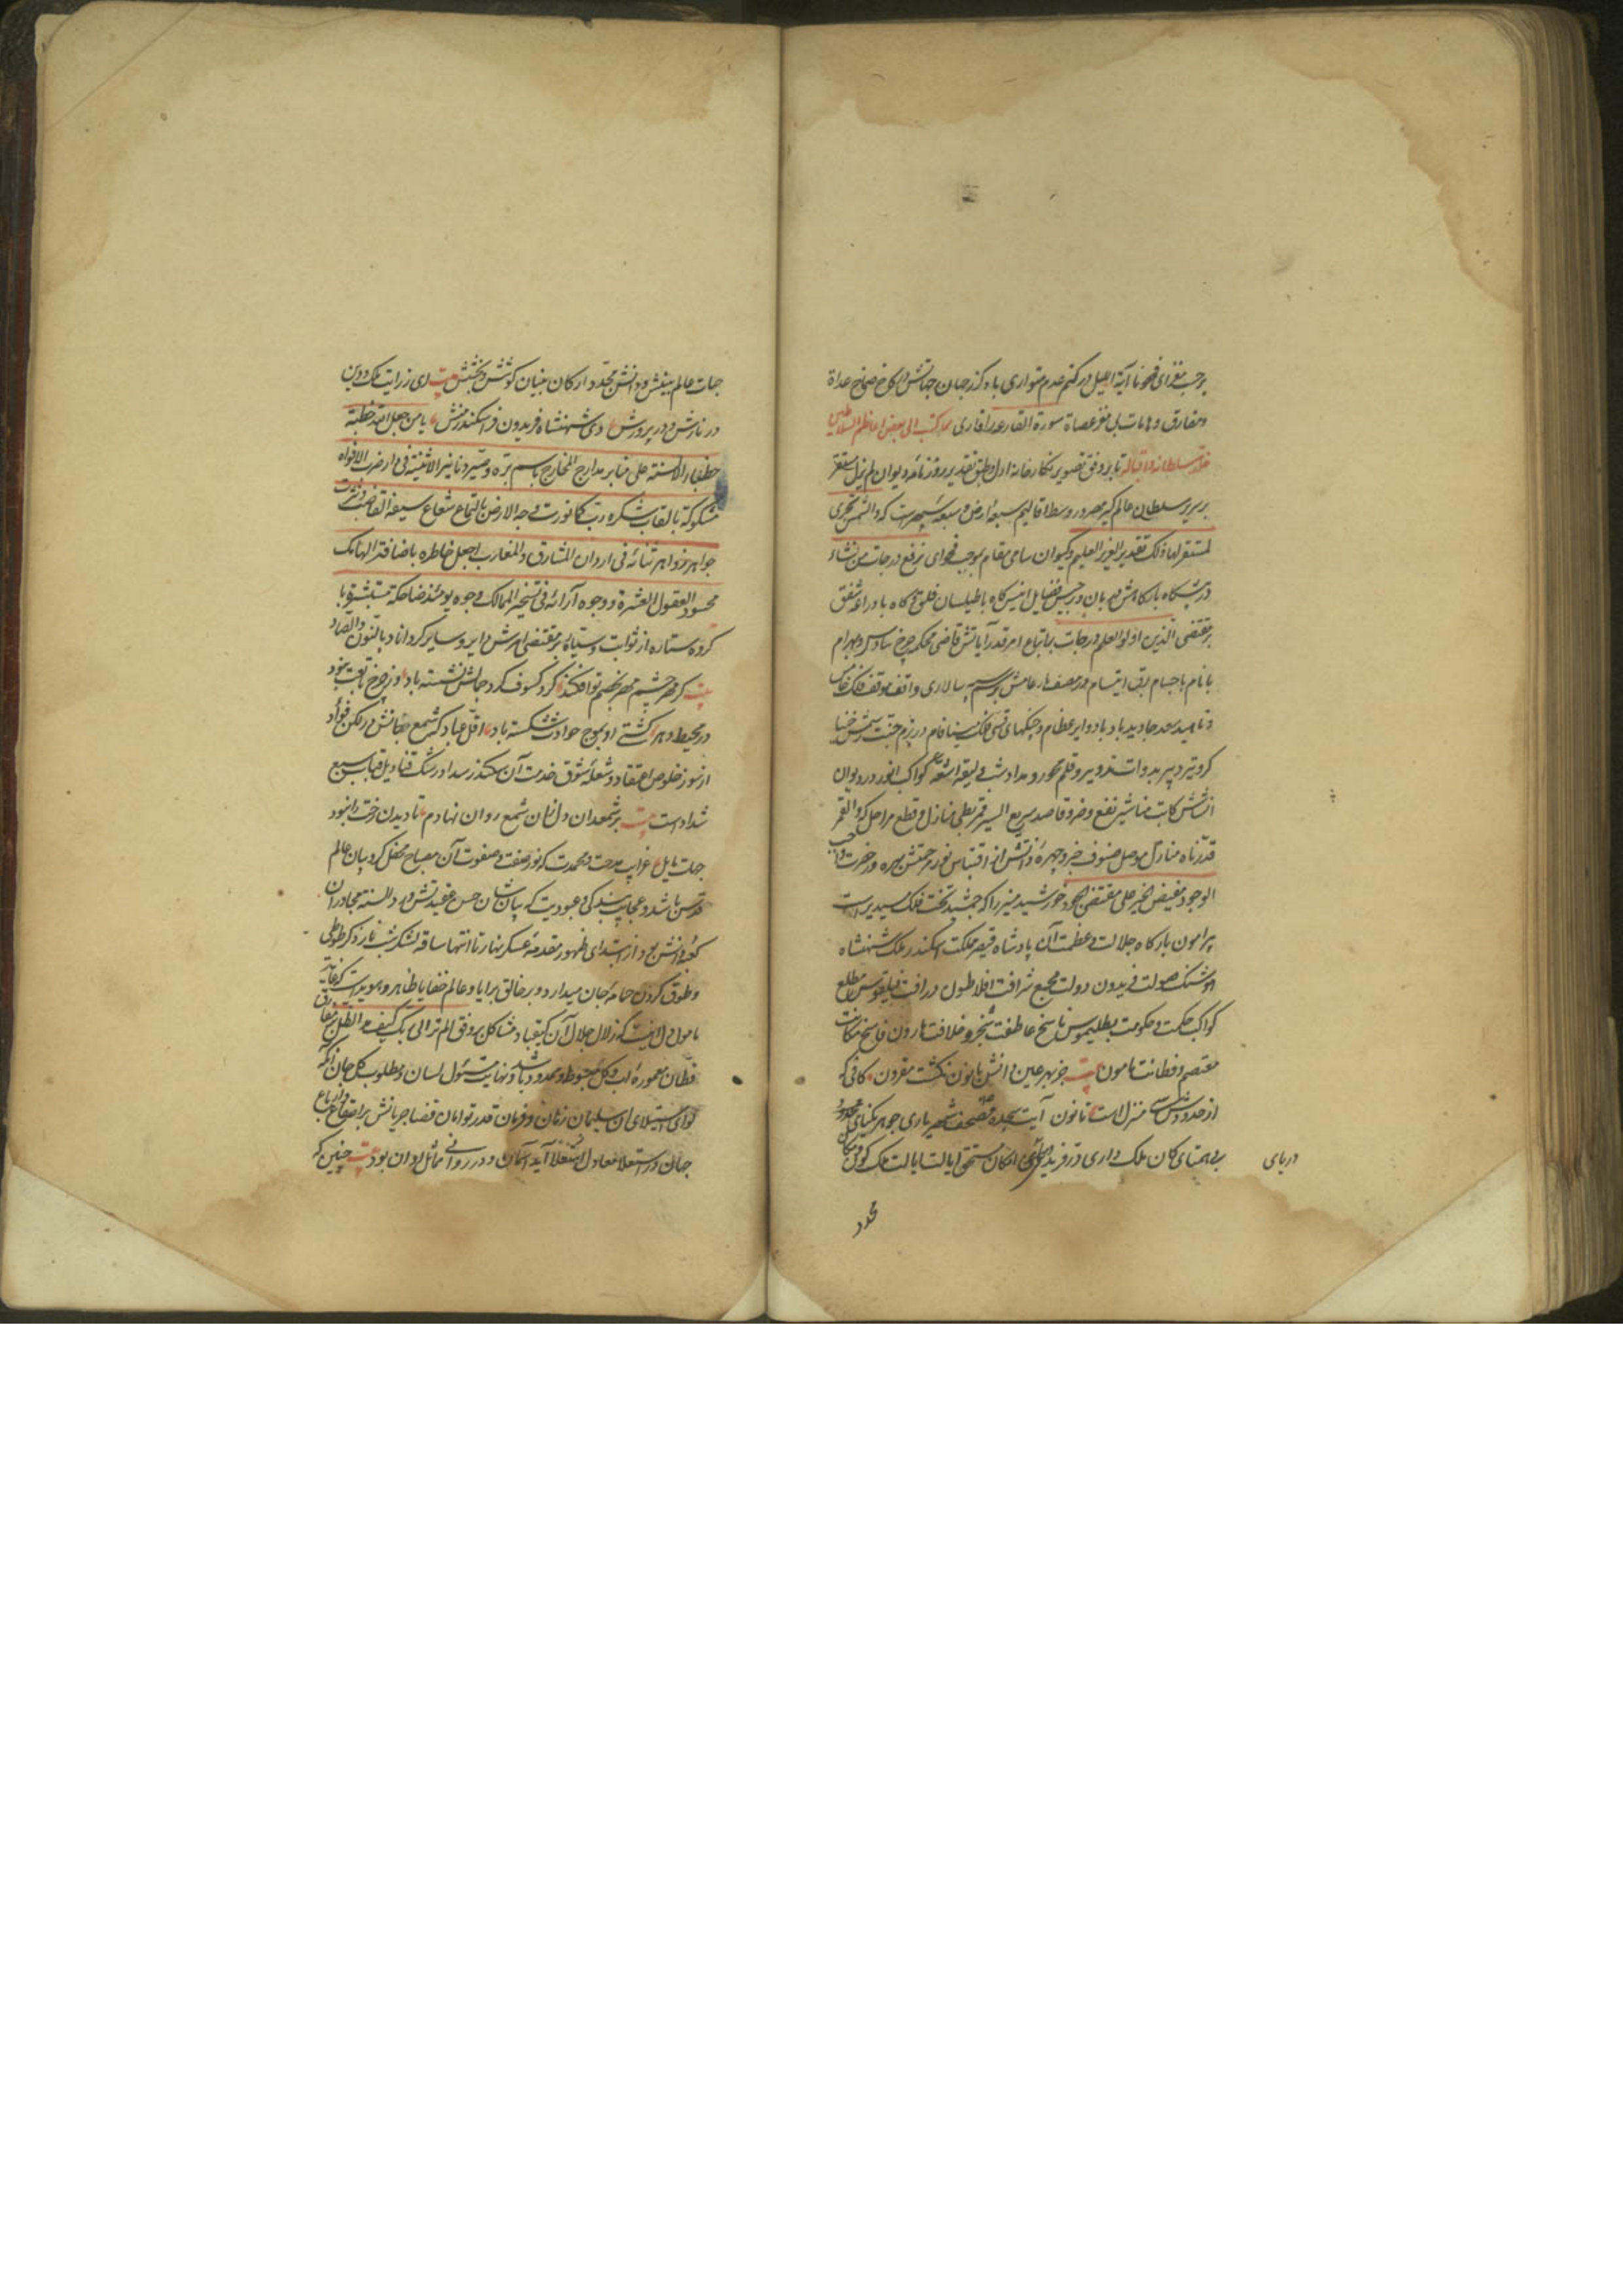 برحسب مؤدای فمحونا آیة اللیل در کتم عدم متواری باد و کذر جهان جهانش در کاخ صماخ عداة
ومفارق و هامات بل مقر عصاة سورة القارعه را قاری مما کتب الی بعض اعاظم السلاطین
خلد سلطانه و اقباله تا بر وفق تصویر نکارخانه ازل و طبق تقدیر روزنامه دیوان لم یزل مستقر
بر سریر سلطان عالم کیر مهر در وسط اقالیم سبعه ارض و سبعه سپهر است که والشمس تجری
لمستقر لها ذلک تقدیر العزیز العلیم و کیوان سامی مقام بموجب فحوای نرفع درجات من نشاء
در پیشکاه بارکاهش دربان و برجیس فضایل انیس کاه با طیلسان فلق و کاه با دراعه شفق
بر مقتضی الذین اوتوا العلم درجات باتباع امر قدر آیاتش قاضی محکمه چرخ سادس و بهرام
با نام با حسام برق ابتسام در مصف بر رسم سپه سالاری واقف موقف فلک خامس
و ناهید سعد جاوید باد و ایر عظام و چنکهای قسی فلک مینا فام در بزم جنت رسمش خنیا
کر و تیر دبیر بدوات تدویر و قلم محور و مداد شب و لیقه اشعه کواکب انور در دیوان
انشاش کاتب مناشیر نفع و ضر و قاصد سریع السیر قمر بطی منازل و قطع مراحل که والقمر
قدرناه منازل موصل صنوف خیر و چهره ذاتش از اقتباس نور مرحمتش بهره ور حضرت واجب
الوجود و مفیض الخیر علی مقتضی الجود خورشید منیر را که جمشید تخت فلک مسدیر است
پیرامون بارکاه جلالت و عظمت آن پادشاه قیصر مملکت اسکندر ملک شهنشاه
هوشنک صولت فریدون دولت مجمع شرافت افلاطون درافت فیلقوس مطلع
کواکب حکمت و حکومت بطلیموس ناسخ عاطفت سنجر و خلافت هارون فاسخ مکانت
معتصم و فطانت مامون بیت جز بهر عین دانش قانون نکشت مقرون کافی که
از حدودش منزل است قانون آیت سجده مصحف شهریاری جوهر یکتای
بی همتای کان ملک داری در فرید امکان مستحق ایالت ایالت ملک کون و مکان
دریای
محدد
جهات عالم بینش و دانش مجدد ارکان بنیان کوشش و بخشش بیت ای ز رایت ملک و دین
در نازش و در پرورش وی شهنشاه فریدون فر اسکندر منش یا من جعل الله خطبة
خطباء الالسنة علی منابر مدارج المخارج باسم بره وصیر دنانیر الاثنیة فی دار ضرب الافواه
مسکوکة بالقاب شکره رب کما نورت وجه الارض بالتماع شعاع سیفه القاضب و نثرت
جواهر زواهر ثنائه فی اردان المشارق والمغارب اجعل خاطره باضافة الهامک
محسود العقول العشرة و وجوه آرائه فی تسخیر الممالک وجوه یومئذ ضاحکة مستبشرة با
کروه ستاره از ثوابت و سیاره بر مقتضی امرش دایر و سایر کرداناد بالنون والصاد
بیت کر مهر چشم مهر بخصم تو افکند کرد کسوف کرد جمالش نشسته باد ور چرخ تابعت نبود
در محیط دهر کشتی او بموج حوادث شکسته باد اقل عباد که شمع جنانش در لکن فؤاد
از نور خلوص اعتقاد و شعله شوق خدمت آن سکندر سداد رشک قنادیل قباب سبع
شداد است بیت بر شمعدان دل شمع روان نهادم تا دیدن رخت را نبود
جهت تایل غرایب مدحت و محمدت که نور صفت و صفوت آن مصباح محفل کروبیان عالم
قدس باشد و عجایب بندکی و عبودیت که بیان شان حسن عقیدتش ورد السنه مجاوران
کعبه دانش بود از ابتدای ظهور مقدمه عسکر نهار تا انتها ساقه لشکر شب تار ذکر طوطی
و طوق کردن حمامه جان میدارد و بر خالق برایا و عالم خفایا ظاهر و هویداست که غایة
مامول دل اینست که زلال جلال آن کیقباد مشاکل بر وفق الم تر الی ربک کیف مد الظل بر مفارق
قطان معموره آب و کل مبسوط و ممدود باشد و نهایت مسئول لسان و مطلوب کل جان آنکه
لوای استیلای آن سلیمان زمان و فرمان قدر توامان قضا جریانش بر اصقاع و ارباع
جهان در استعلا معادل آید آسمان و در روانی مماثل روان بود بیت چنین که